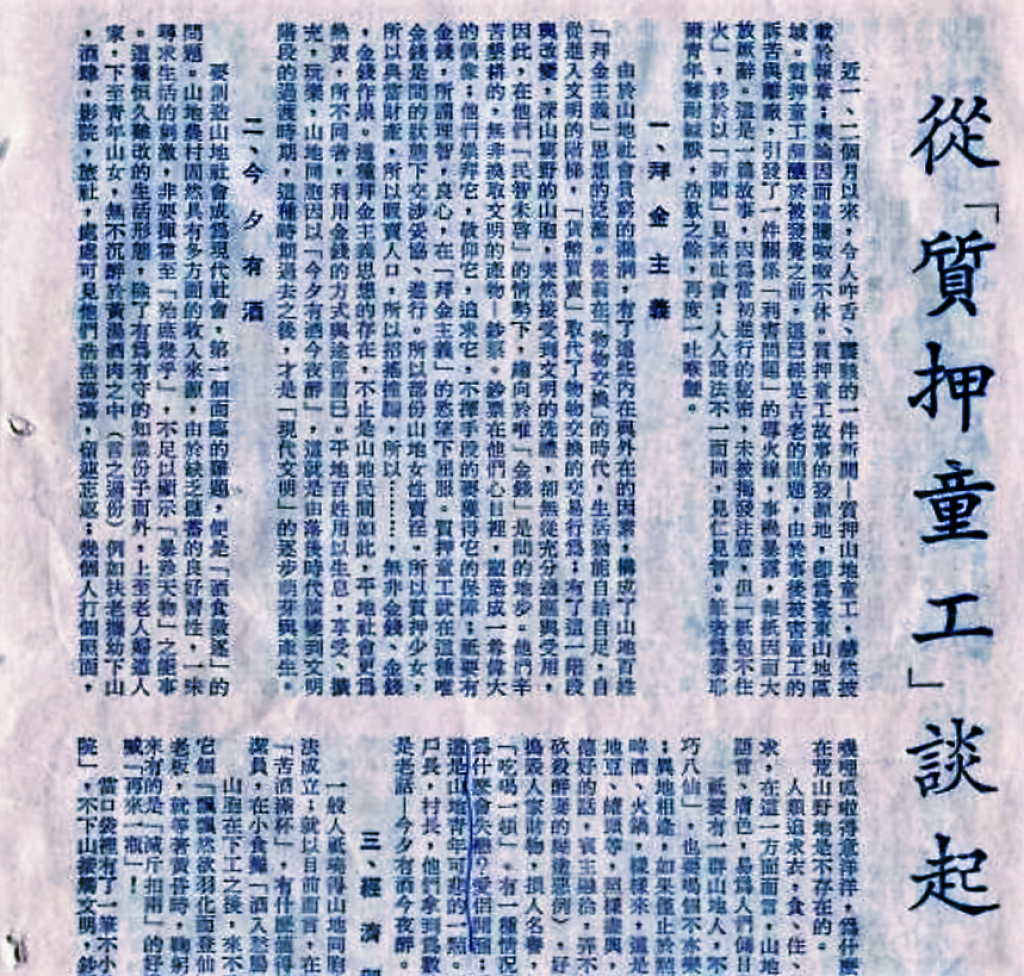 從「質押童工」談起
近一、二個月以來，令人咋舌、震駭的一件新聞—質押山地童工，赫然披
載於報章；輿論因而喧騰啾啾不休。質押童工故事的發源地，卽爲臺東山地區
域。質押童工醞釀於被發覺之前，這已經是古老的問題，由於事後被害童工的
訴苦與離廠，引發了一件關係「利害問題」的導火線，事機暴露，報紙因而大
放厥辭。這是一篇故事，因爲當初進行的秘密，未被揭發注意，但「紙包不住
火」，終於以「新聞」見諸社會；人人說法不一而同，見仁見智。筆者爲泰耶
爾青年難耐緘默，浩歎之餘，再度一吐喉鯁。
一、拜金主義
由於山地社會貧窮的漏洞，有了這些內在與外在的因素，構成了山地百姓
「拜金主義」思想的泛濫。從前在「物物交換」的時代，生活猶能自給自足，自
從進入文明的階梯，「貨幣買賣」取代了物物交換的交易行爲；有了這一階段
與改變，深山窮野的山胞，突然接受到文明的洗禮，卻無從充分適應與受用，
因此，在他們「民智未啓」的情勢下，趨向於唯「金錢」是問的地步。他們辛
苦墾耕的，無非換取文明的產物—鈔票。鈔票在他們心目裡，塑造成一尊偉大
的偶像；他們崇拜它，敬仰它，追求它，不擇手段的要獲得它的保障；祇要有
金錢，所謂理智，良心，在「拜金主義」的慾望下屈服。質押童工就在這種唯
金錢是問的狀態下交涉妥協、進行。所以部份山地女性賣淫，所以質押少女，
所以典當財產，所以販賣人口，所以招搖撞騙，所以………無非金錢、金錢
，金錢作祟。這種拜金主義思想的存在，不止是山地民間如此，平地社會更爲
熱衷，所不同者，利用金錢的方式與途徑而已。平地百姓用以生息，享受、講
究，玩樂，山地同胞因以「今夕有酒今夜醉」，這就是由落後時代演變到文明
階段的過渡時期，這種時期過去之後，才是「現代文明」的逐步萌芽與產生。
二、今夕有酒
要創造山地社會成爲現代社會，第一個面臨的難題，便是「酒食徵逐」的
問題。山地農村固然具有多方面的收入來源，由於缺乏儲蓄的良好習性，一味
尋求生活的刺激，非要揮霍至「殆底幾乎」，不足以顯示「暴殄天物」之能事
。這種恒久難改的生活形態，除了有爲有守的知識份子而外，上至老人婦道人
家，下至青年山女，無不沉醉於黃湯酒肉之中（言之過份）例如扶老攜幼下山
，酒肆，影院，旅社，處處可見他們浩浩蕩蕩，留連忘返；幾個人打個照面，
嘰哩呱啦得意洋洋，爲什麼
在荒山野地是不存在的。
人類追求衣，食、住、
求，在這一方面而言，山地
語言、膚色，易爲人們側目
祇要有一群山地人，不
巧八仙」，也要喝個不亦樂
；異地相逢，如果僅止於熱
啤酒、火鍋，樣樣來，還是
地豆、罐頭等，照樣盡興，
態好的話，賓主融洽，弄不
砍殺酗妻的
搗毀人家財物，損人名譽，
「吃喝一頓」。有一種情況
爲什麼會失戀？愛侶開溜；
這是山地青年可悲的一點。
戶長，村長，他們拿到爲數
是老話—今夕有酒今夜醉。
三、經濟
一般人祇曉得山地同胞
法成立；就以目前而言，在
「苦酒滿杯」，有什麼值得
潔員，在小食攤「酒入愁腸
山胞在下工之後，來不
它個「飄飄然欲羽化而登仙
老板，就等著黃昏時，鞠躬
來有的是「減斤扣兩」的好
喊「再來一瓶」！
當口袋裡有了一筆不小
院」，不下山接觸文明，鈔